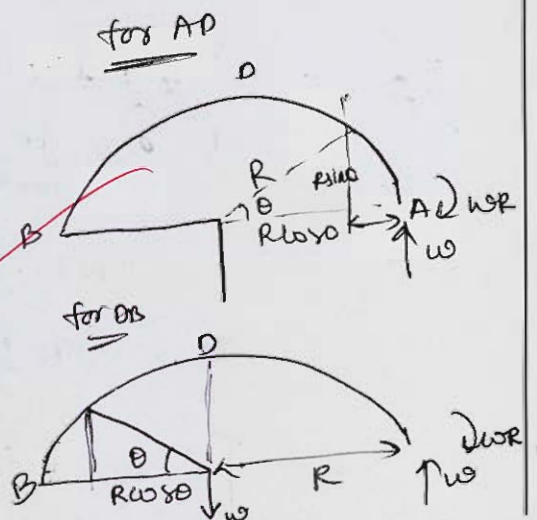 for AD
D
R
Rsinθ
θ
B
Rcosθ
A
WR
W
for DB
D
θ
B
Rcosθ
R
W
WR
W